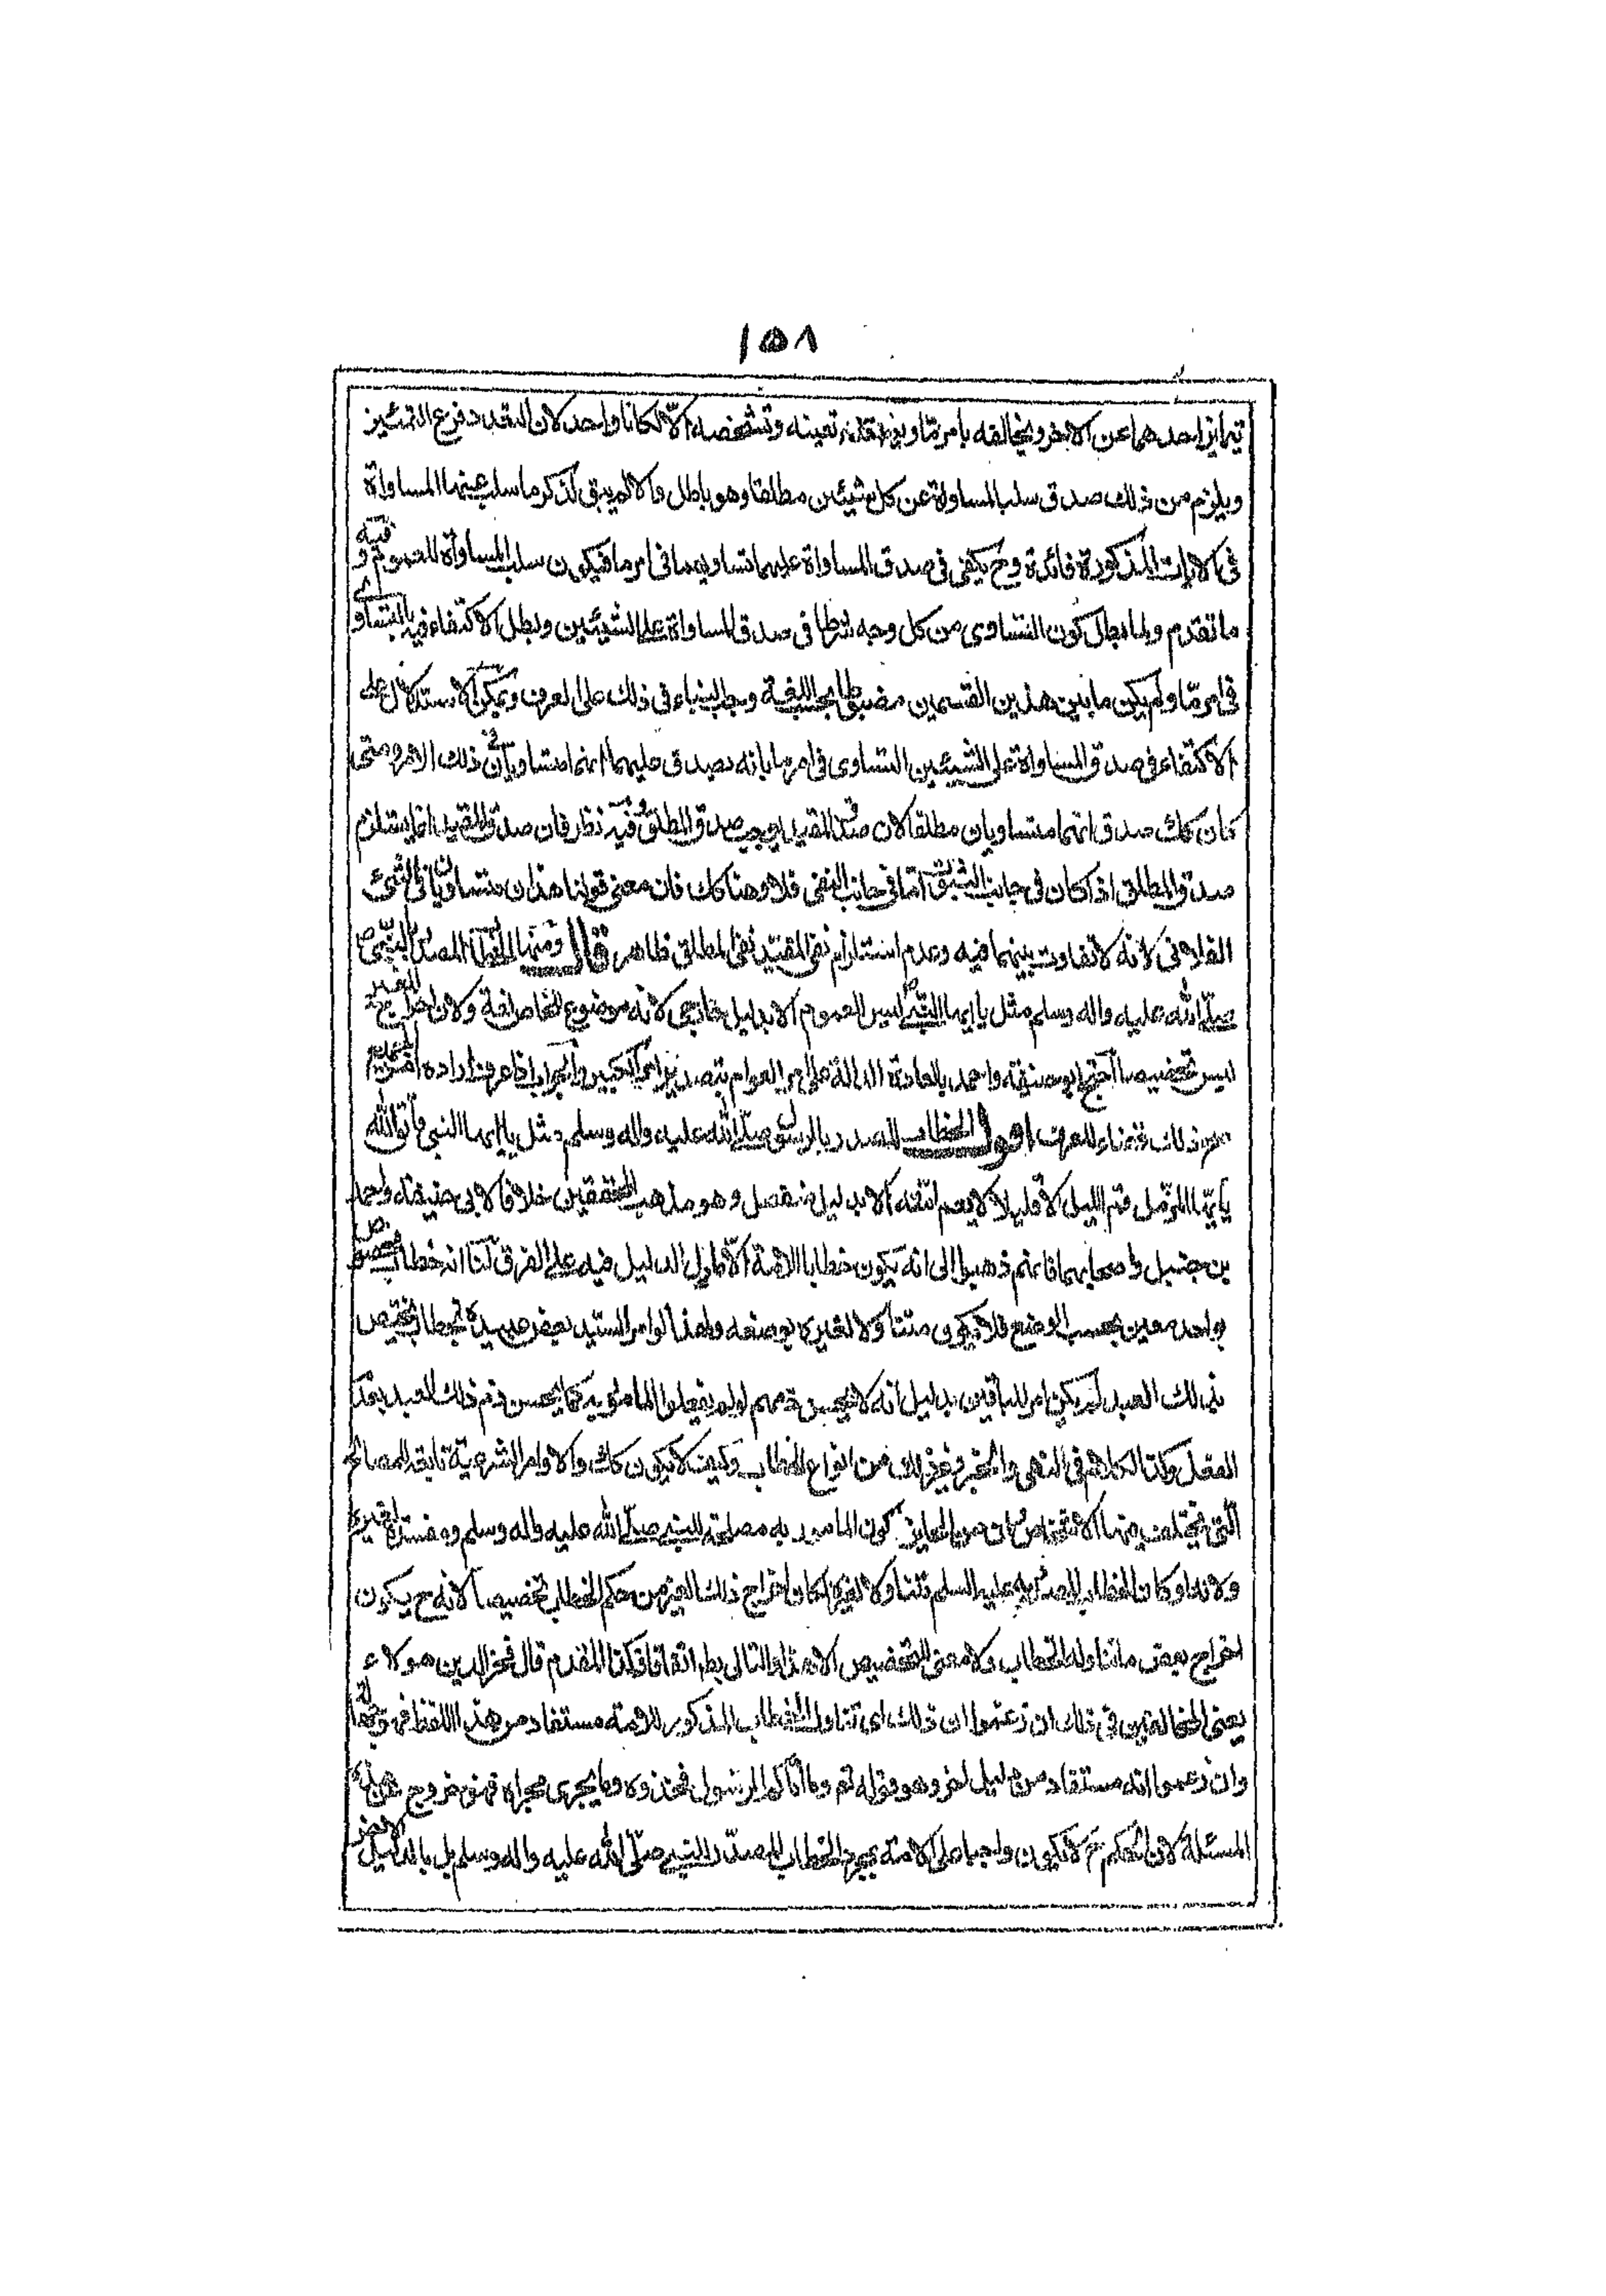 ١٥٨
تمايز احدهما عن الاخر ويخالفه بامر ما وتشخصه والا لكانا واحد لان التعدد فرع التمئيز
ويلزم من ذلك صدق سلب المساواة عن كل شيئين مطلقا وهو باطل والا لم يبق لذكر ما سلب عنهما المساواة
فى الايات المذكورة فائدة وح يكفى فى صدق المساواة عليهما تساويهما فى امر ما فيكون سلب المساواة للعموم وفيه
ما تقدم ولما بطل كون التساوى من كل وجه شرطا فى صدق المساواة على الشيئين وبطل الاكتفاء فيه بالتساوى
فى امر ما ولم يكن ما بين هذين القسمين مضبطا بحسب اللغة وجب البناء فى ذلك على العرف ويمكن الاستدلال على
الاكتفاء فى صدق المساواة على الشيئين التساوى فى امر ما بانه يصدق عليهما انهما متساويان فى ذلك الامر ومتى
كان كك صدق انهما متساويان مطلقا لان صدق المقيد يوجب صدق المطلق وفيه نظر فان صدق المقيد انما يستلزم
صدق المطلق اذا كان فى جانب الثبوت اما فى جانب النفى فلا وهنا كك فان معنى قولنا هذان متساويان فى الشئ
الفلانى لانه لا تفاوت بينهما فيه وعدم استلزام نفى المقيد نفى المطلق ظاهر قال ومنها الخطاب المصدر بالنبى
صلى الله عليه واله وسلم مثل يا ايها النبى ليس للعموم الا بدليل خارجى لانه موضوع للخاص لغة ولان اخراج الغير
ليس تخصيصا احتج ابو حنيفة واحمد بالعادة الدالة على امر العوام بتصدير امر الكبير والجواب اذا عرف ارادة التعميم
من ذلك قضاء للعرف اقول الخطاب المصدر بالرسول صلى الله عليه واله وسلم مثل يا ايها النبى اتق الله
يا ايها المزمل قم الليل الا قليلا لا يعم امته الا بدليل منفصل وهو مذهب المحققين خلافا لابى حنيفة واحمد
بن حنبل واصحابهما فانهم ذهبوا الى انه يكون خطابا للامة الا ما دل الدليل فيه على الفرق لنا انه خطاب مخصوص
بواحد معين بحسب الوضع فلا يكون متناولا لغيره بوضعه ولهذا لو امر السيد بعض عبيده بخطاب يختص
بذلك العبد لم يكن امر للباقين بدليل انه لا يحسن ذمهم لو لم يفعلوا المامور به كما يحسن ذم ذلك العبد بعد
الفعل وكذا الكلام فى النهى والخبر وغير ذلك من انواع الخطاب وكيف لا يكون كك والاوامر الشرعية تابعة للمصالح
التى يختلف فيها الاشخاص فان من الجايز كون المامور به مصلحة للنبى صلى الله عليه واله وسلم ومفسدة لغيره
ولانه لو كان الخطاب المصدر به عليه السلم متناولا لغيره لكان اخراج ذلك الغير من حكم الخطاب تخصيصا لانه ح يكون
اخراج بعض ما تناوله الخطاب ولا معنى للتخصيص الا هذا والتالى بط اتفاقا فكذا المقدم قال فخر الدين هولاء
يعنى المخالفين فى ذلك ان زعموا ان ذلك اى تناول الخطاب المذكور للامة مستفاد من هذا اللفظ فهو جهالة
وان زعموا انه مستفاد من دليل اخر وهو قوله تع وما اتاكم الرسول فخذوه وما يجرى مجراه فهو خروج عن
المسئلة لان الحكم ح لا يكون واجبا على الامة بمجرد الخطاب المصدر بالنبى صلى الله عليه واله وسلم بل بالدليل الاخر